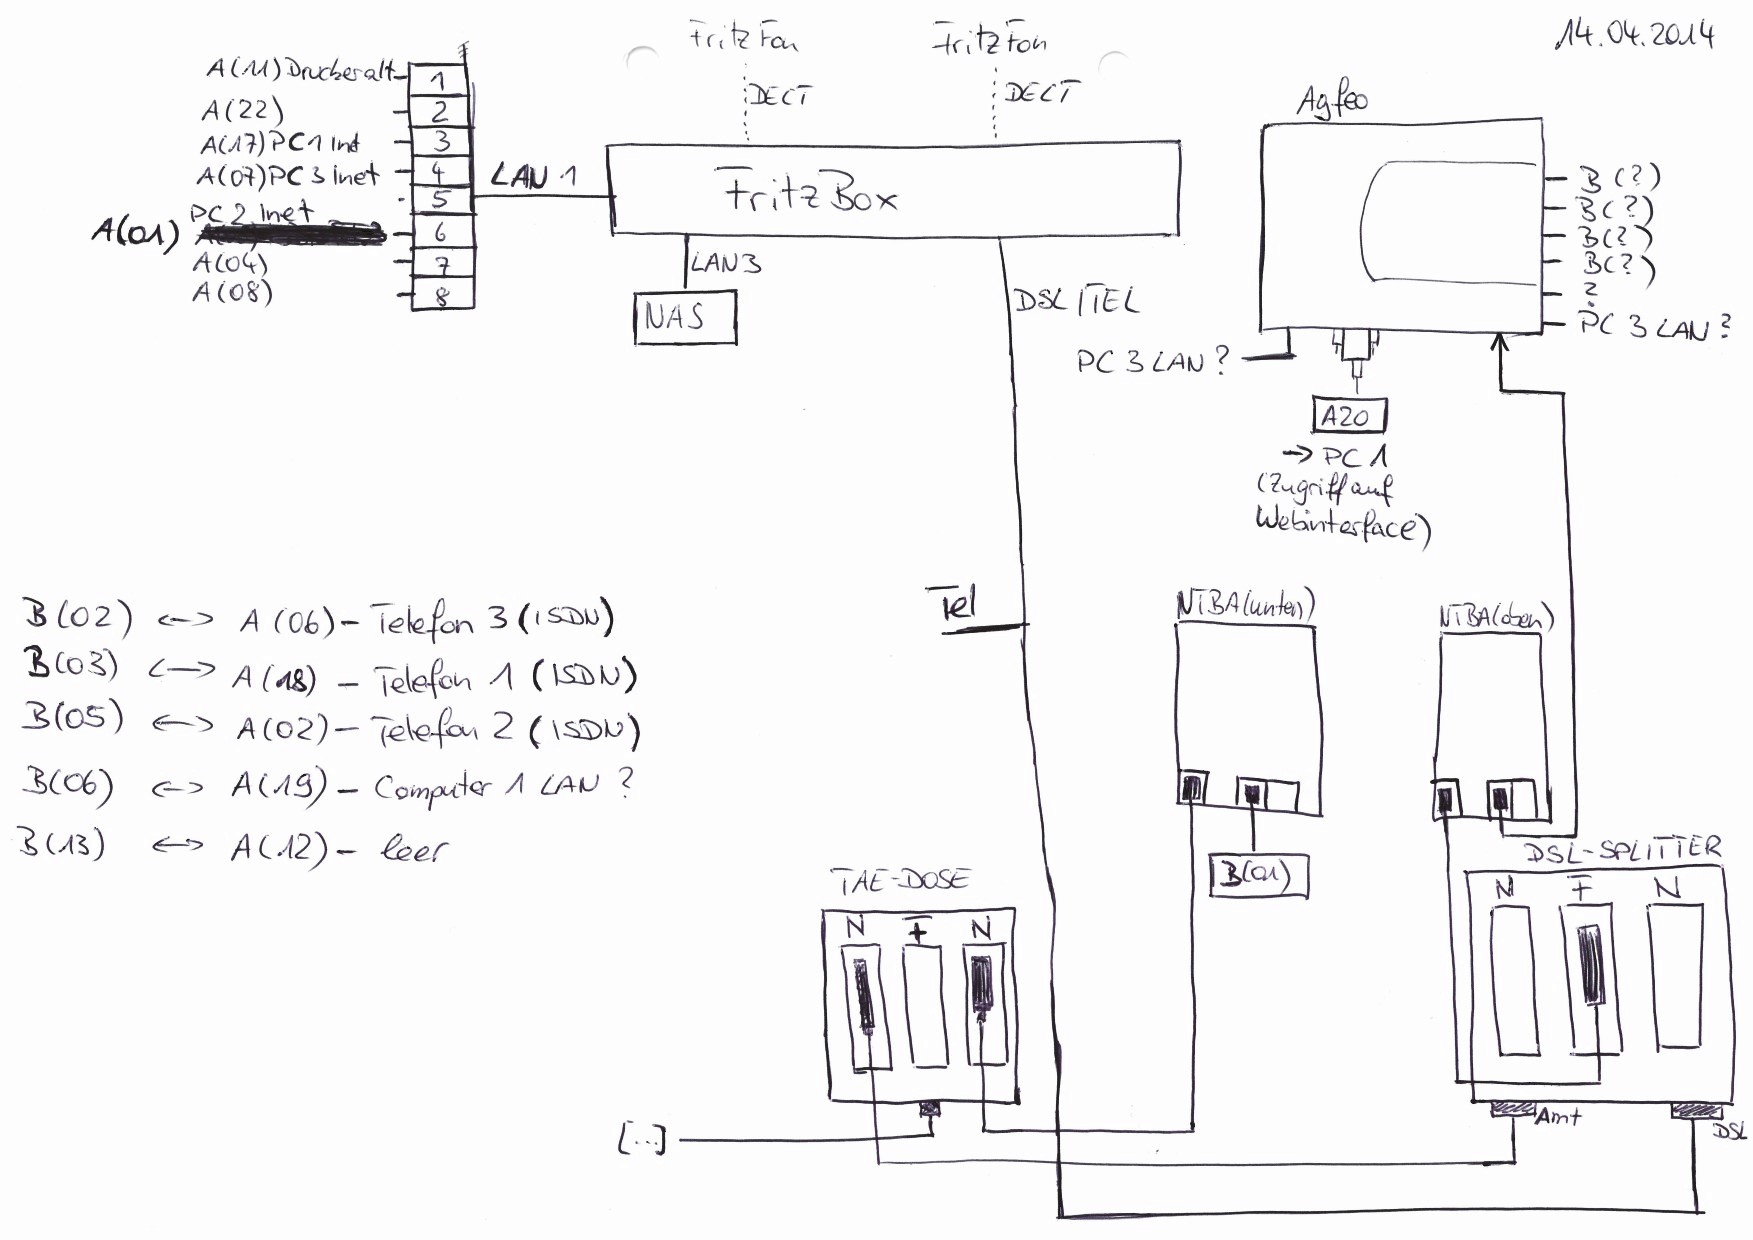 14.04.2014
FritzFon
FritzFon
DECT
DECT
A(11) Drucker alt
A(22)
A(17) PC 1 Int
A(07) PC 3 inet
PC 2 Inet
A(01)
A(04)
A(08)
1
2
3
4
5
6
7
8
LAN 1
FritzBox
LAN3
NAS
DSL/TEL
Agfeo
B(?)
B(?)
B(?)
B(?)
?
PC 3 LAN?
PC 3 LAN?
A20
→ PC 1
(Zugriff auf
Webinterface)
Tel
B(02) <-> A(06) - Telefon 3 (ISDN)
B(03) <-> A(18) - Telefon 1 (ISDN)
B(05) <-> A(02) - Telefon 2 (ISDN)
B(06) <-> A(19) - Computer 1 LAN ?
B(13) <-> A(12) - leer
NTBA(unten)
B(01)
NTBA(oben)
TAE-DOSE
N F N
[...]
DSL-SPLITTER
N F N
Amt
DSL